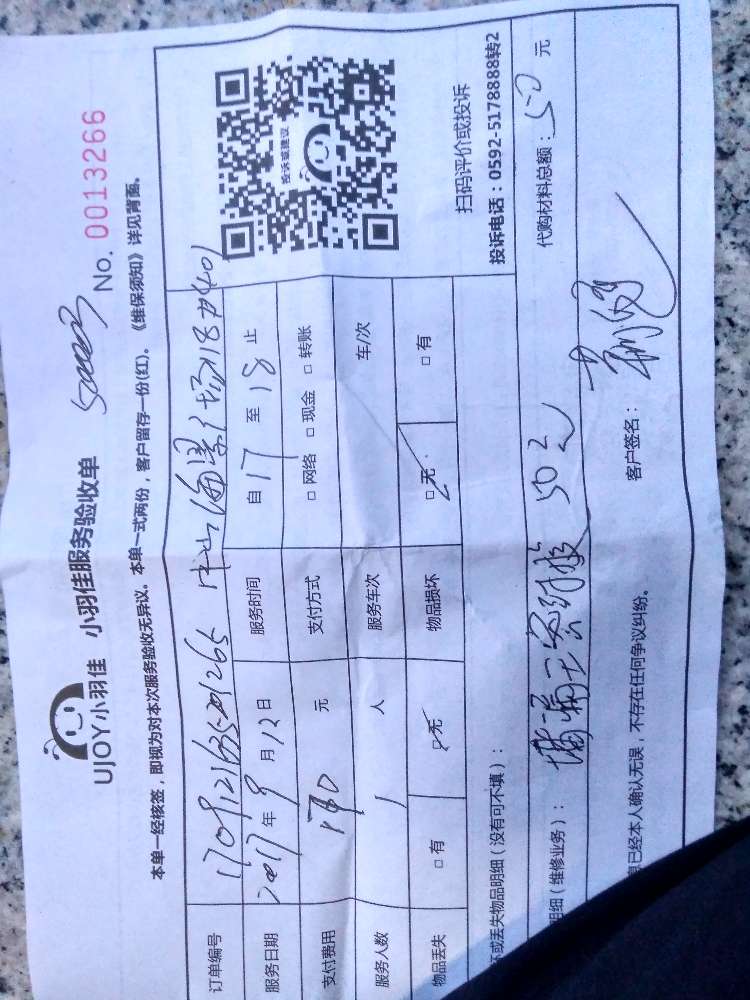 UJOY小羽佳 小羽佳服务验收单 No. 0013266
本单一经核签，即视为对本次服务验收无异议。本单一式两份，客户留存一份(红)。《维保须知》详见背面。
订单编号
服务日期 2017 年 9 月 12 日 服务时间 自 17 至 18 止
支付费用 元 支付方式 □ 网络 □ 现金 □ 转账
服务人数 1 人 服务车次 车/次
物品丢失 □ 有 □ 无 物品损坏 □ 无 □ 有
投诉或建议
扫码评价或投诉
投诉电话：0592-5178888转2
坏或丢失物品明细（没有可不填）：
明细（维修业务）： 50元 代购材料总额：50 元
息已经本人确认无误，不存在任何争议纠纷。 客户签名：